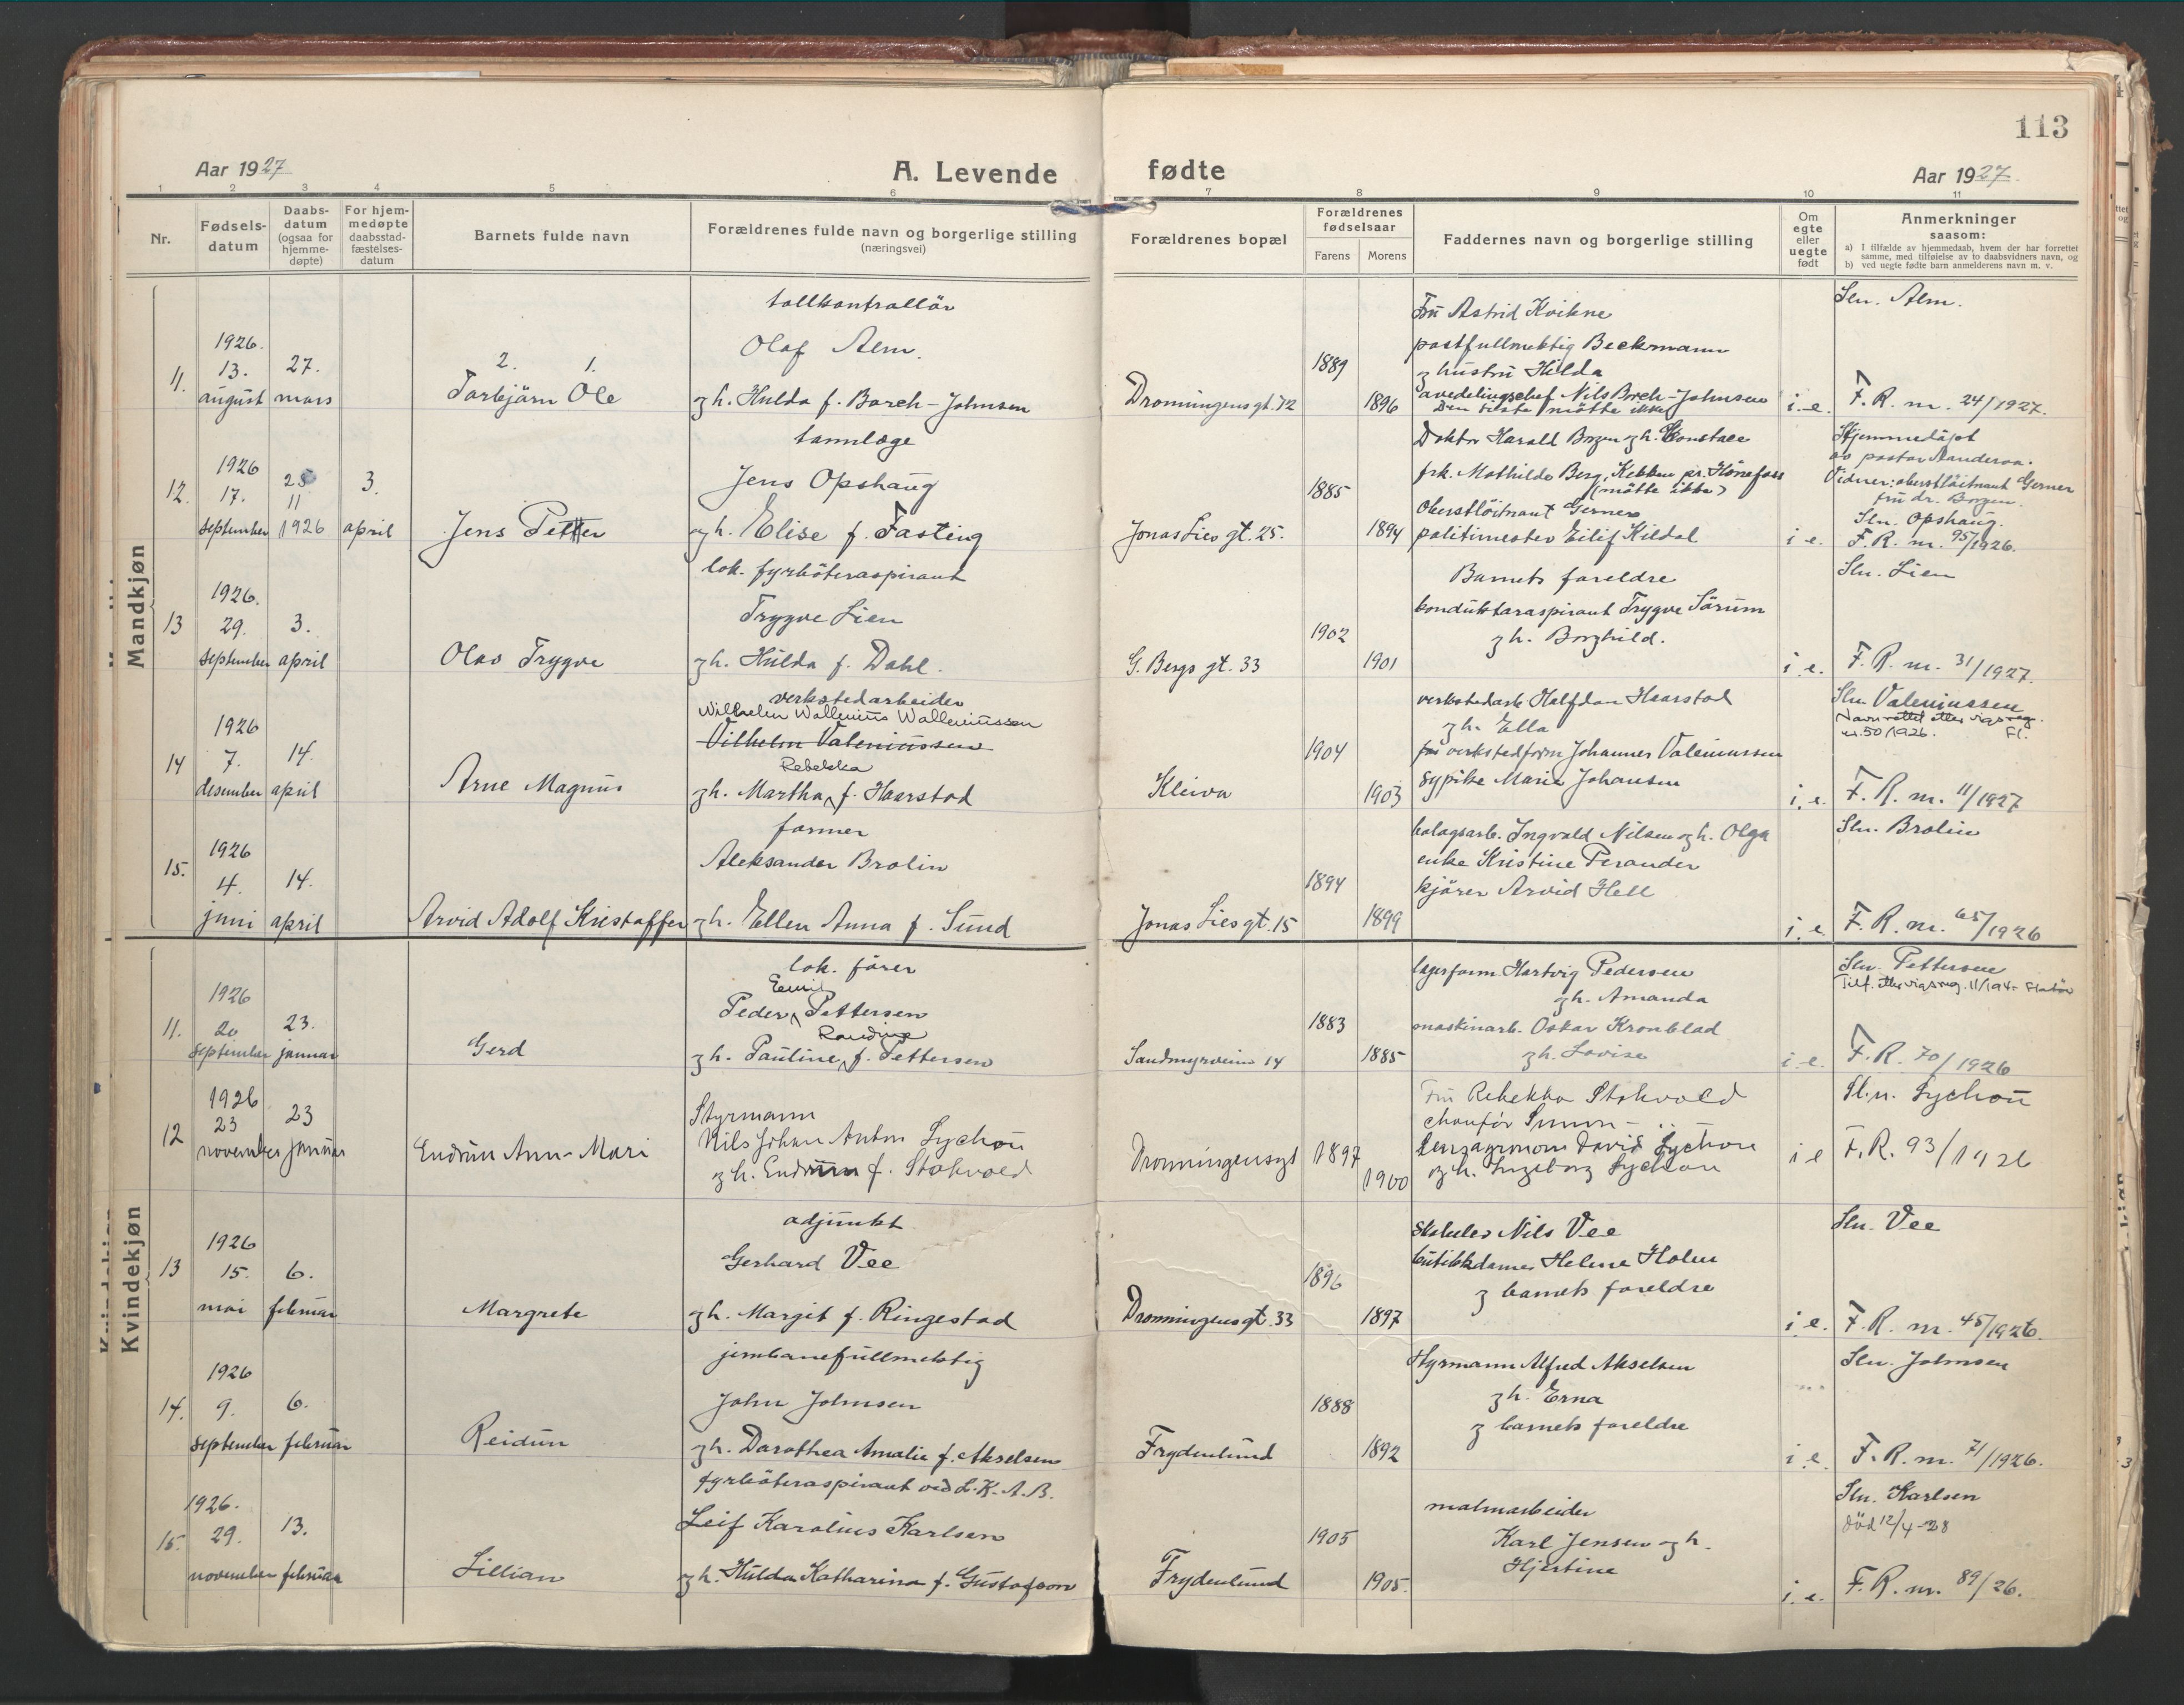 113
Aar 1927
A. Levende fødte
Aar 1927
1 2 3 4 5 6 7 8 9 10 11
Nr.
Fødsels-
datum
Daabs-
datum
(ogsaa for
hjemme-
døpte)
For hjem-
medøpte
daabsstad-
fæstelses-
datum
Barnets fulde navn
Forældrenes fulde navn og borgerlige stilling
(næringsvei)
Forældrenes bopæl
Forældrenes
fødselsaar
Farens Morens
Faddernes navn og borgerlige stilling
Om
egte
eller
uegte
født
Anmerkninger
saasom:
a) I tilfælde av hjemmedaab, hvem der har forrettet
samme, med tilføielse av to daabsvidners navn, og
b) ved uegte fødte barn anmelderens navn m. v.
Mandkjøn
11.
1926.
13.
august
27.
mars
2. 1.
Torbjörn Ole
tollkontrollör
Olaf Alm.
og h. Hulda f. Borch-Johnsen
Dronningensgt. 72
1889
1896
Fru Astrid Kvikne
postfullmektig Beckmann
og hustru Hilda
avdelingschef Nils Borch-Johnsen
Den siste mötte ikke
i. e.
Sln. Alm.
F. R. nr. 24/1927.
12.
1926
17.
september
25
11
1926
3.
april
Jens Petter
tannlæge
Jens Opshaug
og h. Elise f. Fasting
Jonas Lies gt. 25.
1885
1894
Doktor Harald Borgen og h. Konstase
frk. Mathilde Berg, Kekken pr. Hönefoss
(mötte ikke)
Oberstlöitnant Gerner
politimester Eilif Kildal
i e.
Hjemmedöpt
av pastor Aanderaa.
Vidner: oberstlöitnant Gerner
fru dr. Borgen.
Sln. Opshaug.
F. R. nr. 95/1926.
13
1926.
29.
september
3.
april
Olav Trygve
lok. fyrböteraspirant
Trygve Lien
og h. Hulda f. Dahl.
G. Bergs gt. 33
1902
1901
Barnets foreldre
konduktöraspirant Trygve Sörum
og h. Borghild.
i. e.
Sln. Lien
F. R. nr. 31/1927.
14
1926
7.
desember
14.
april
Arne Magnus
verkstedarbeider
Wilhelm Wallenius Walleniussen
Vilhelm Valeniussen
Rebekka
og h. Martha f. Haarstad
Kleiva
1904
1903
verkstedarb. Halfdan Haarstad
og h. Ella
verkstedform. Johannes Valeniussen
sypike Marie Johansen
i. e.
Sln Valeniussen
Navn rettet etter vigsreg.
nr. 50/1926. Fl.
F. R. nr. 11/1927
15.
1926
4.
juni
14.
april
Arvid Adolf Kristoffer
former
Aleksander Brolin
og h. Ellen Anna f. Sund
Jonas Lies gt. 15
1894
1899
bolagsarb. Ingvald Nilsen og h. Olga
enke Kristine Perander
kjörer Arvid Hell
i. e.
Sln. Brolin
F. R. nr. 65/1926
Kvindekjøn
11.
1926
20
september
23.
januar
Gerd
lok. förer
Emil
Peder Pettersen
Randine
og h. Pauline f. Pettersen
Sandmyrveien 14
1883
1885
lagerform. Hartvig Pedersen
og h. Amanda
maskinarb. Oskar Kronblad
og h. Lovise
i e.
Sln. Pettersen
F. R. 70/1926
12
1926
23
november
23
januar
Endrun Ann-Mari
Styrmann
Nils Johan Anton Lychou
og h. Endrun f. Stokvold
Dronningensgt
1897
1900
Fru Rebekka Stokvold
chauför
David Lychou
og h. Ingeborg Lychou
i e
Sl.n. Lychou
F. R. 93/1926
13
1926
15.
mai
6.
februar
Margrete
adjunkt
Gerhard Vee
og h. Margit f. Ringestad
Dronningensgt. 33
1896
1897
Nils Vee
butikkdame Helene Holm
og barnets foreldre
i. e.
Sln. Vee
F. R. nr. 45/1926.
14.
1926
9.
september
6.
februar
Reidun
jernbanefullmektig
John Johnsen
og h. Dorothea Amalie f. Akselsen
Frydenlund
1888
1892
Styrmann Alfred Akselsen
og h. Erna
og barnets foreldre
i e.
Sln. Johnsen
F. R. nr. 71/1926.
15.
1926.
29.
november
13.
februar
Lillian
fyrböteraspirant ved L.K.A.B.
Leif Karolius Karlsen
og h. Hulda Katharina f. Gustafson
Frydenlund
1905
1905.
malmarbeider
Karl Jensen og h.
Hjertine
i. e.
Sln. Karlsen
död 12/4-28
F. R. nr. 89/26.